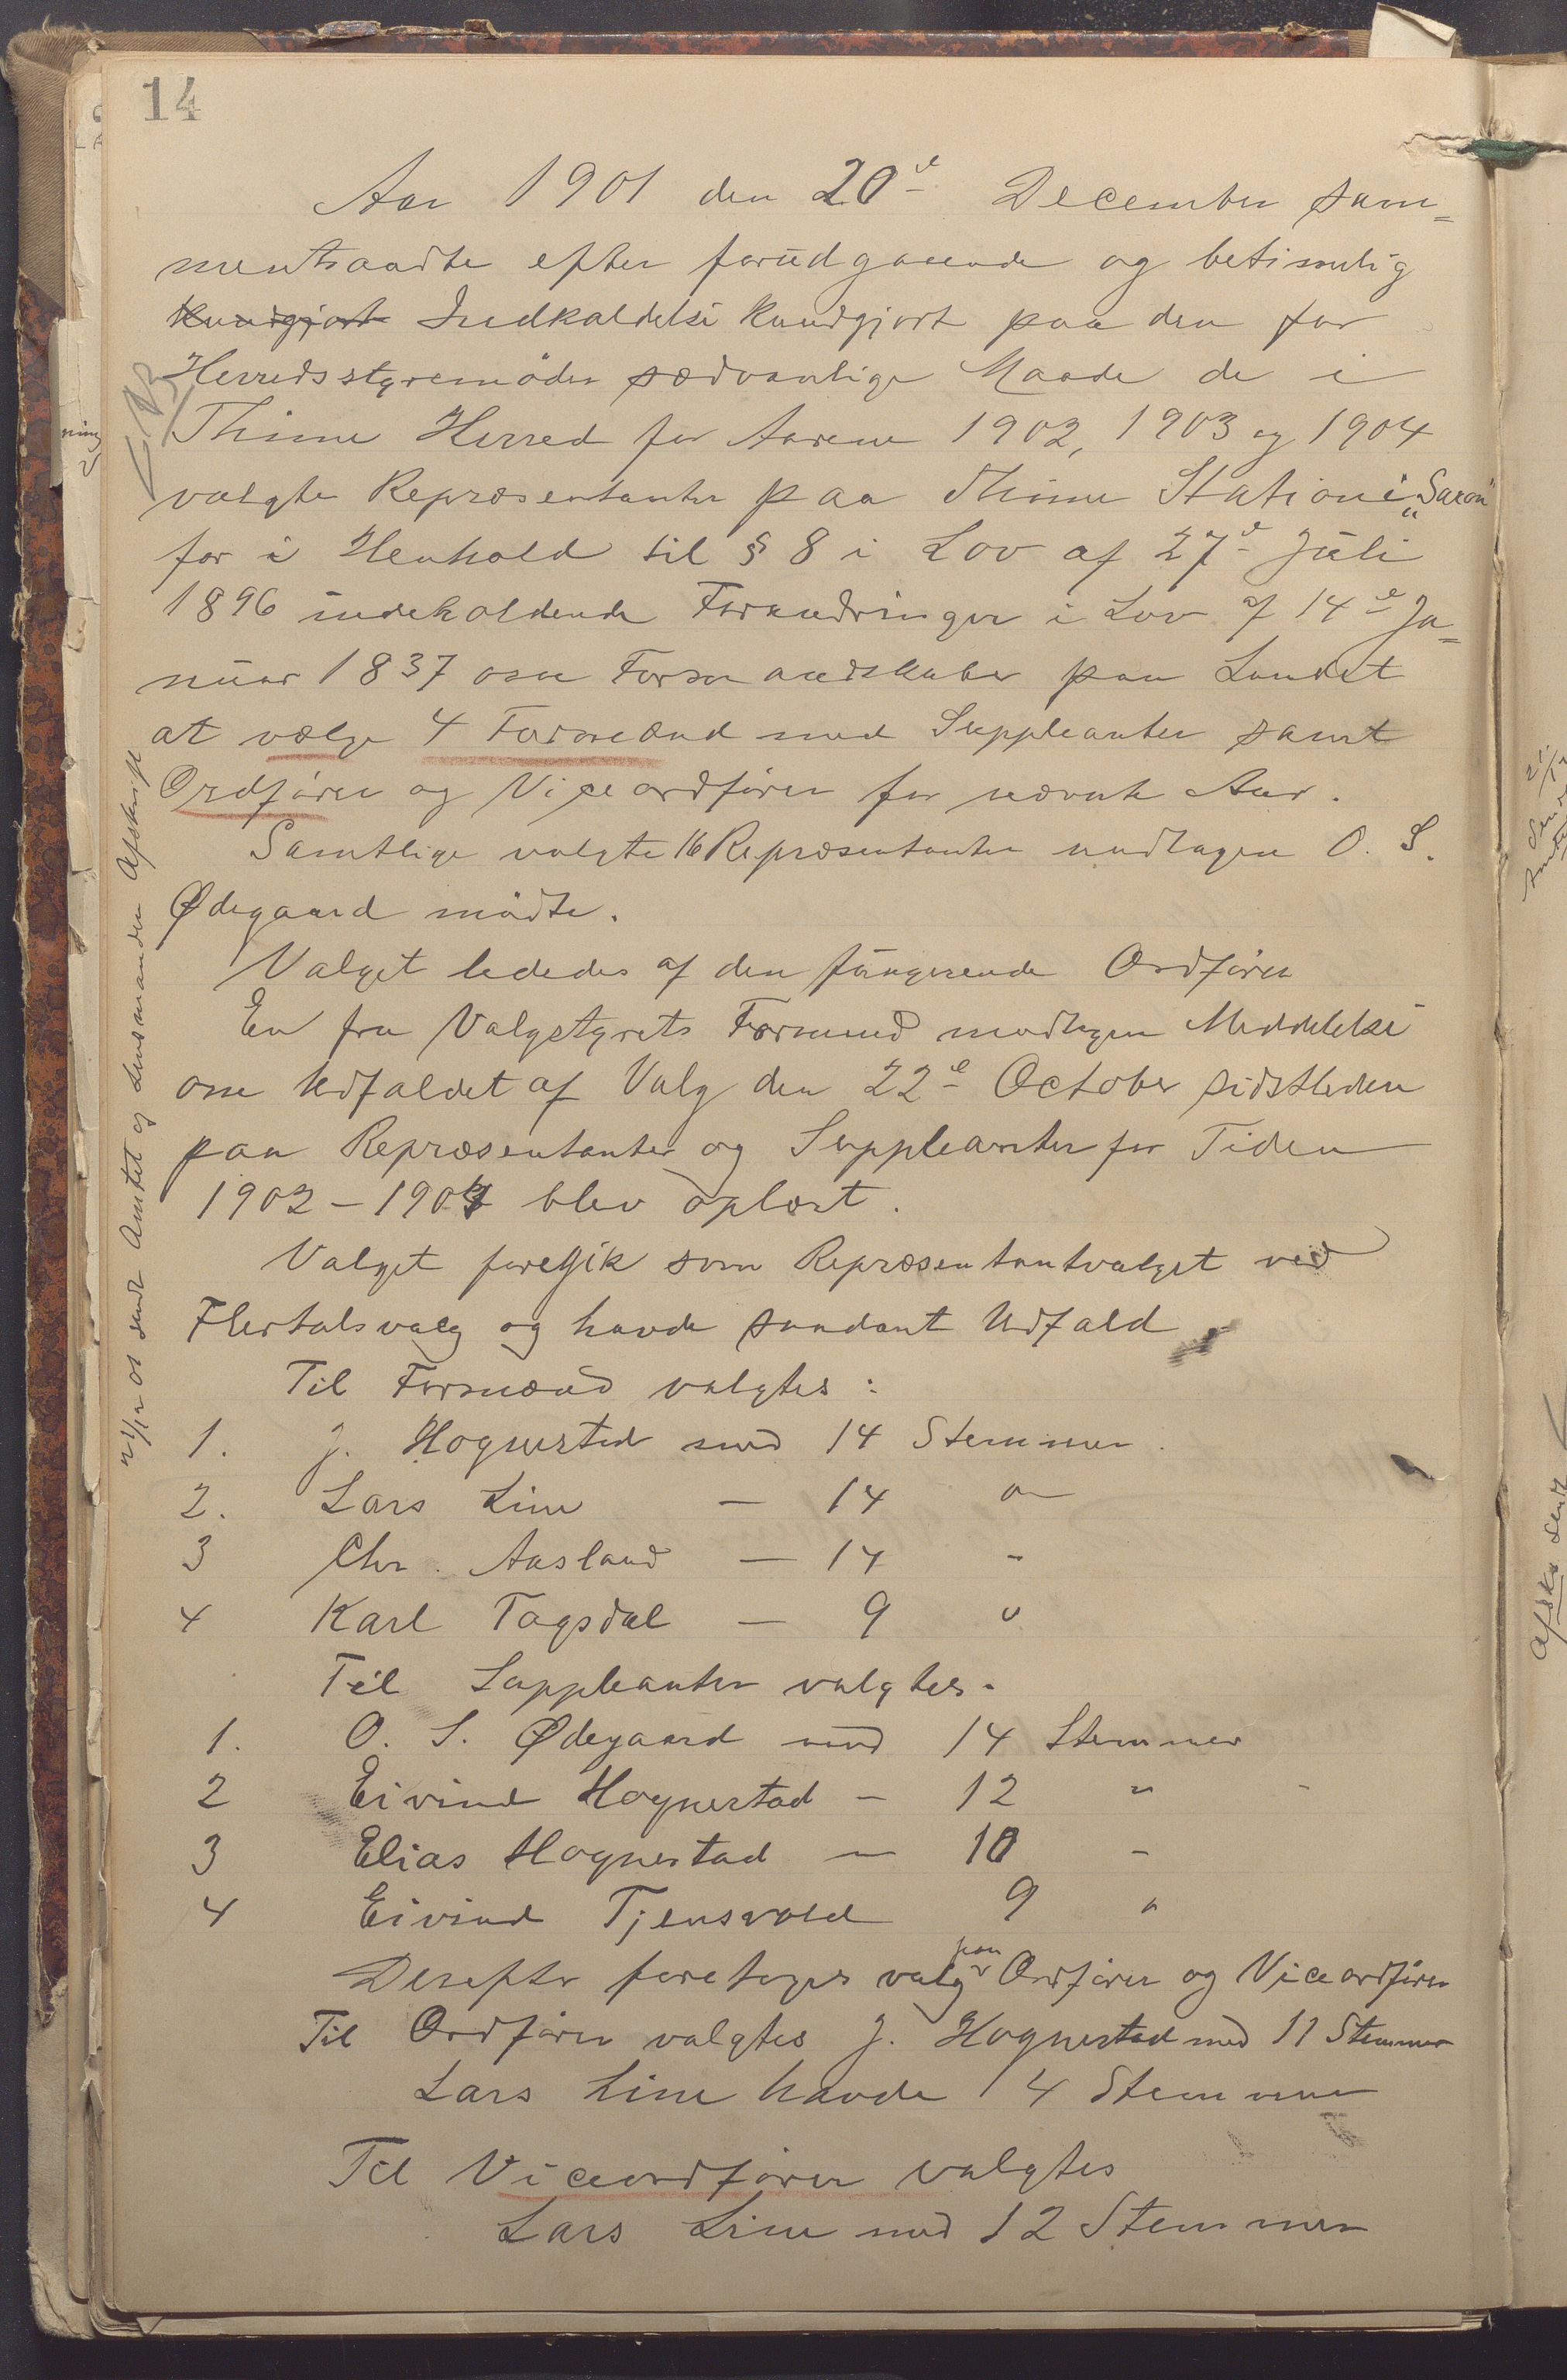 14
Aar 1901 den 20de December sam=
mentraadte efter forudgaaende og betimelig
Kundgjort Indkaldelse kundgjort paa den for
Herredsstyremöder sædvanlige Maade de i
Thime Herred for Aarene 1902, 1903 og 1904
valgte Repræsentanter paa Thime Station i „Saron"
for i Henhold til § 8 i Lov af 27de Juli
1896 indeholdende Forandringer i Lov af 14de Ja=
nuar 1837 om Formandskaber paa Landet
at vælge 4 Formænd med Suppleanter samt
Ordförer og Viceordförer for nævnte Aar.
Samtlige valgte 16 Repræsentanter undtagen O. S.
Ødegaard mödte.
Valget lededes af den fungerende Ordförer
En fra Valgstyrets Formand modtagen Meddelelse
om Udfaldet af Valg den 22de October sidstleden
paa Repræsentanter og Suppleanter for Tiden
1902 – 1904 blev oplæst.
Valget foregik som Repræsentantvalget ved
Flertalsvalg og havde saadant Udfald
Til Formænd valgtes:
1. J. Hognestad med 14 Stemmer.
2. Lars Lime — 14 "
3 Chr. Aasland — 14 "
4 Karl Tagsdal — 9 "
Til Suppleanter valgtes.
1. O. S. Ødegaard med 14 Stemmer
2 Eivind Hognestad – 12 "
3 Elias Hognestad – 10 "
4 Eivind Tjensvold 9 "
Derefter foretoges valg paa Ordförer og Viceordförer
Til Ordförer valgtes J. Hognestad med 11 Stemmer
Lars Lime havde 4 Stemmer
Til Viceordförer valgtes
Lars Lime med 12 Stemmer
sendt Amtet og Lensmanden Afskrift
Afskr sendt